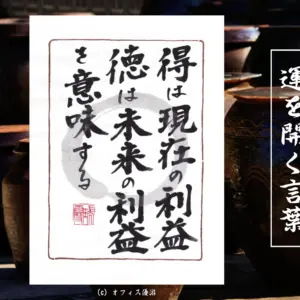 運を開く言葉
得は現在の利益
徳は未来の利益
を意味する
(c) オフィス海沼